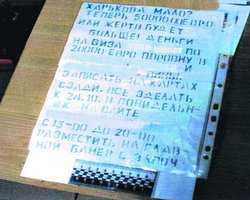 ХАРЬКОВА МАЛО?
ТЕПЕРЬ 50000(Х)ЕВРО
ИЛИ ЖЕРТВ БУДЕТ
БОЛЬШЕ! ДЕНЬГИ
НА ВИЗА ПО
20000 ЕВРО ПОРОВНУ В
И ПИНЫ
ЗАПИСАТЬ НА КАРТАХ
СЗАДИ. ВСЕ ЗДЕЛАТЬ
К 24.10 В ПОНИДЕЛЬН-
ИК НА САЙТЕ
С 15-00 ДО 20-00
РАЗМЕСТИТЬ НА ГЛАВ
ИЛИ БАНЕР С